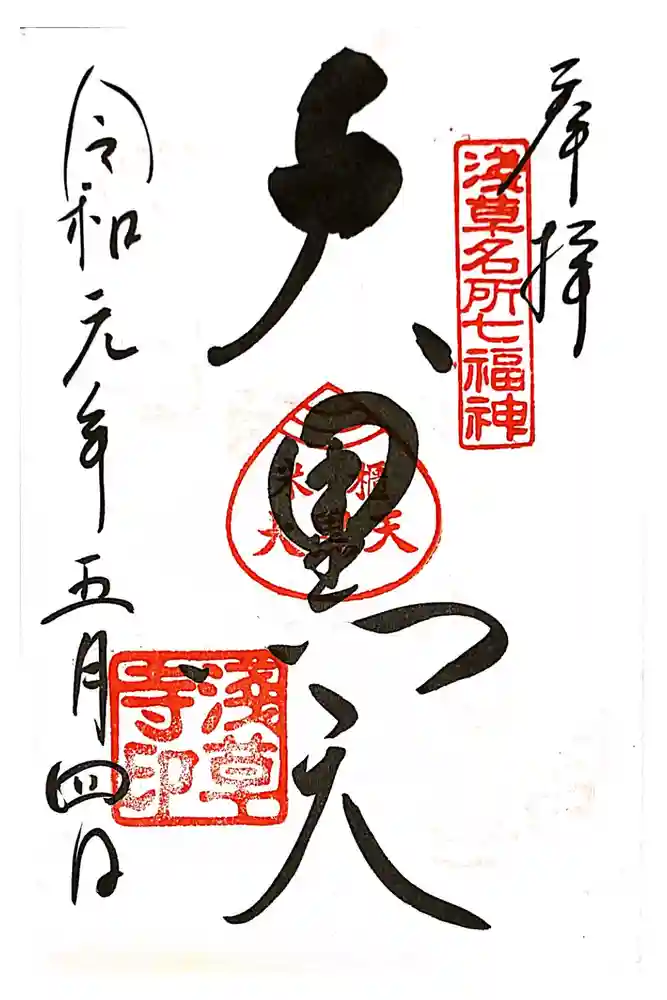 奉拝
浅草名所七福神
大黒天
米櫃
大黒天
浅草
寺印
令和元年五月四日